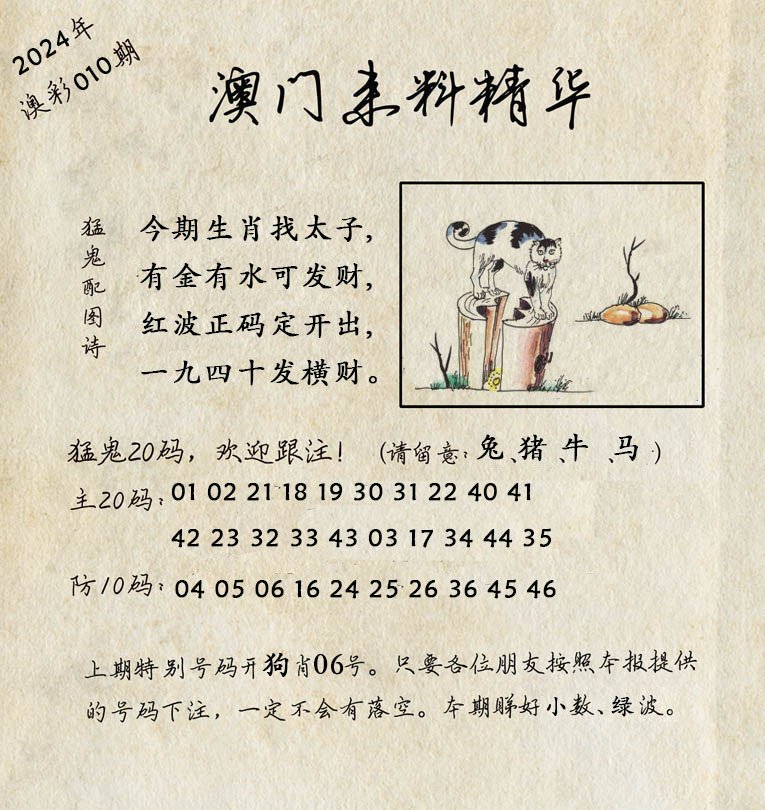 2024年
澳彩010期
澳门来料精华
猛鬼配图诗
今期生肖找太子，
有金有水可发财，
红波正码定开出，
一九四十发横财。
猛鬼20码，欢迎跟注！（请留意：兔、猪、牛、马）
主20码：01 02 21 18 19 30 31 22 40 41
42 23 32 33 43 03 17 34 44 35
防10码：04 05 06 16 24 25 26 36 45 46
上期特别号码开狗肖06号。只要各位朋友按照本报提供
的号码下注，一定不会有落空。本期睇好小数、绿波。